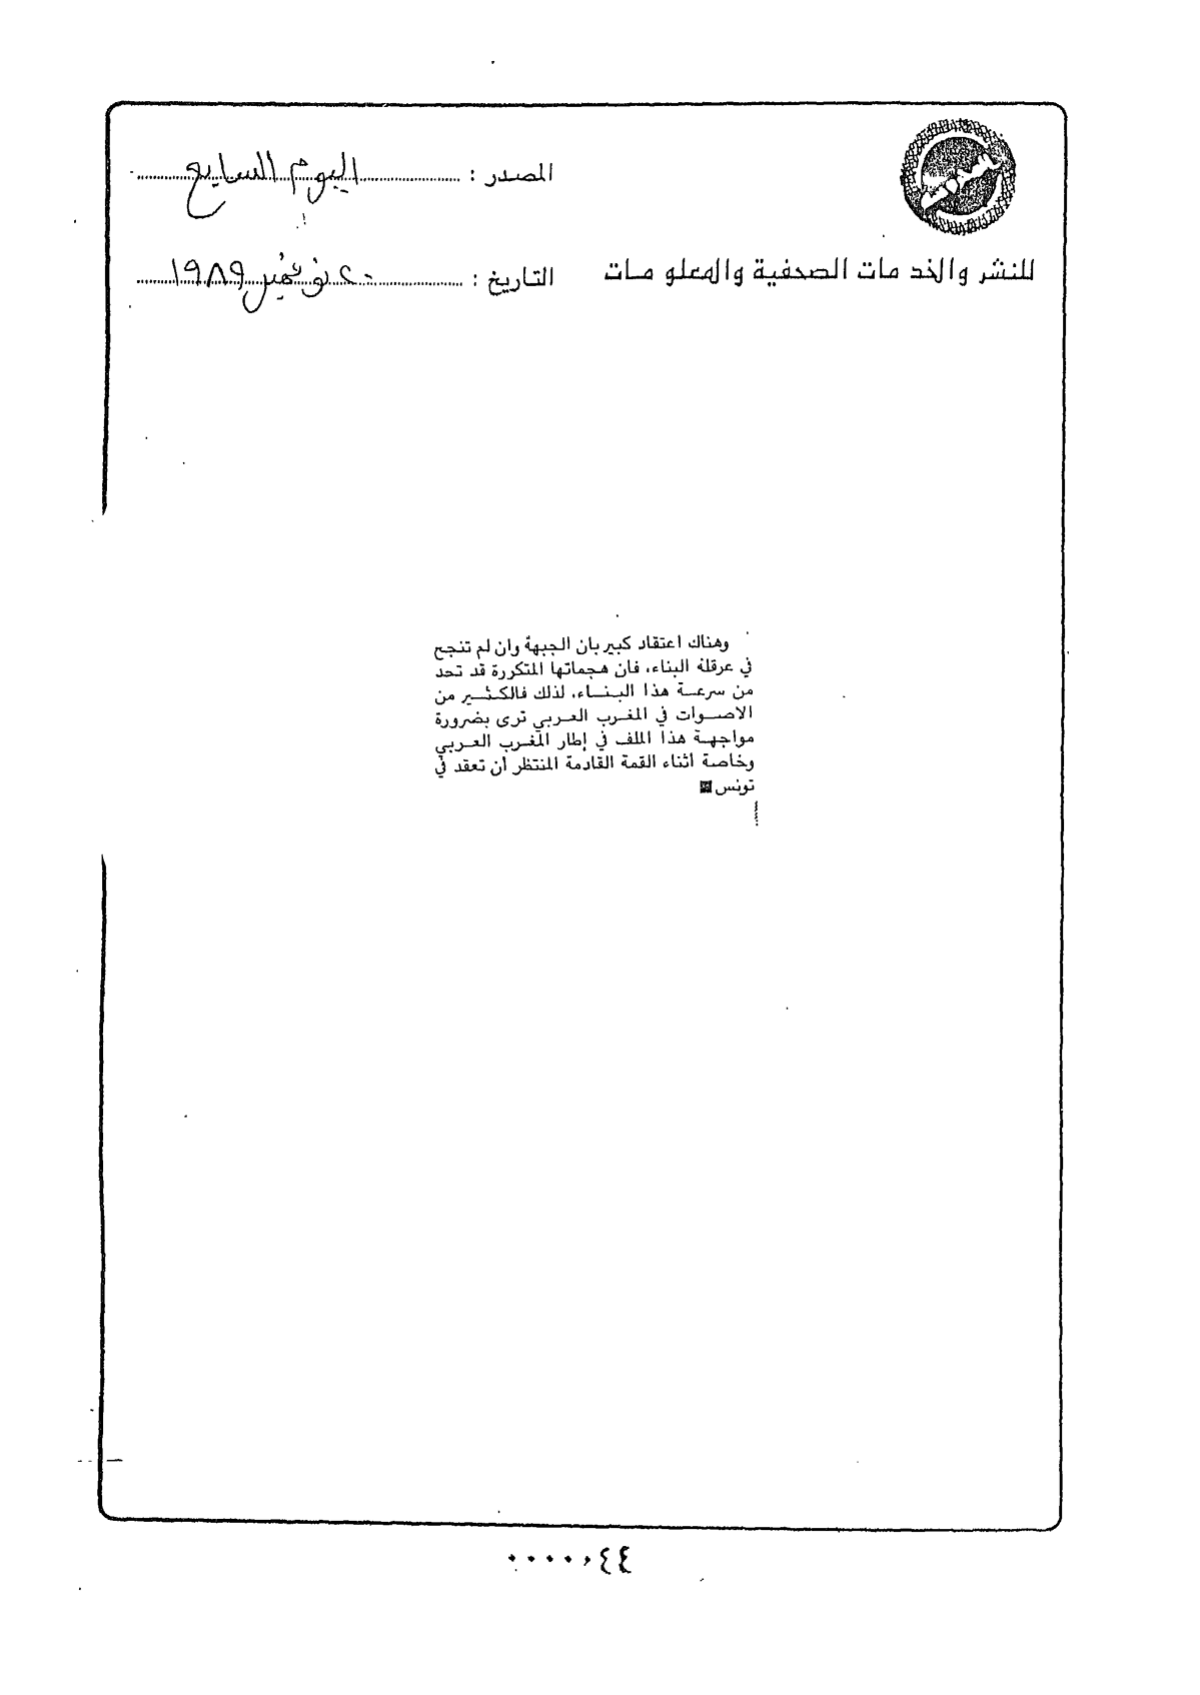 المصدر : اليوم السابع
للنشر والخد مات الصحفية والمعلو مات
التاريخ : ٢٠ نوفمبر ١٩٨٩
وهناك اعتقاد كبير بان الجبهة وان لم تنجح
في عرقلة البناء، فان هجماتها المتكررة قد تحد
من سرعة هذا البناء، لذلك فالكثير من
الاصوات في المغرب العربي ترى بضرورة
مواجهة هذا الملف في إطار المغرب العربي
وخاصة اثناء القمة القادمة المنتظر أن تعقد في
تونس